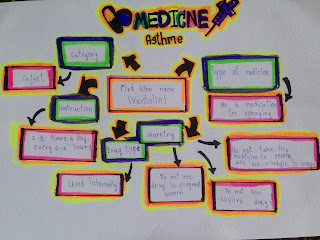 MEDICNE
Asthme
Category
Inject
Med blue name
(Ventolin)
Type of medicine
As a medication
for spraying
Instruction
2-3 times a day
every
hours
Drug type
Warning
Used Internally
Do not use
drug in pregnant
women
Do not take this
medicine in person
who are allergic to drugs
Do not use
expired drugs